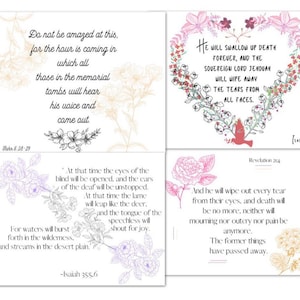 Do not be amazed at this,
for the hour is coming in
which all
those in the memorial
tombs will hear
his voice and
come out
28-29
HE WILL SWALLOW UP DEATH
FOREVER, AND THE
SOVEREIGN LORD JEHOVAH
WILL WIPE AWAY
THE TEARS FROM
ALL FACES.
"...At that time the eyes of the
blind will be opened, and the ears
of the deaf will be unstopped.
At that time the lame
will leap like the deer,
and the tongue of
the speechless will
shout for joy.
For waters will burst
forth in the wilderness,
and streams in the desert plain."
-Isaiah 35:5,6
Revelation 21:4
And he will wipe out every tear
from their eyes, and death will
be no more, neither will
mourning nor outcry nor pain be
anymore.
The former things
have passed away.